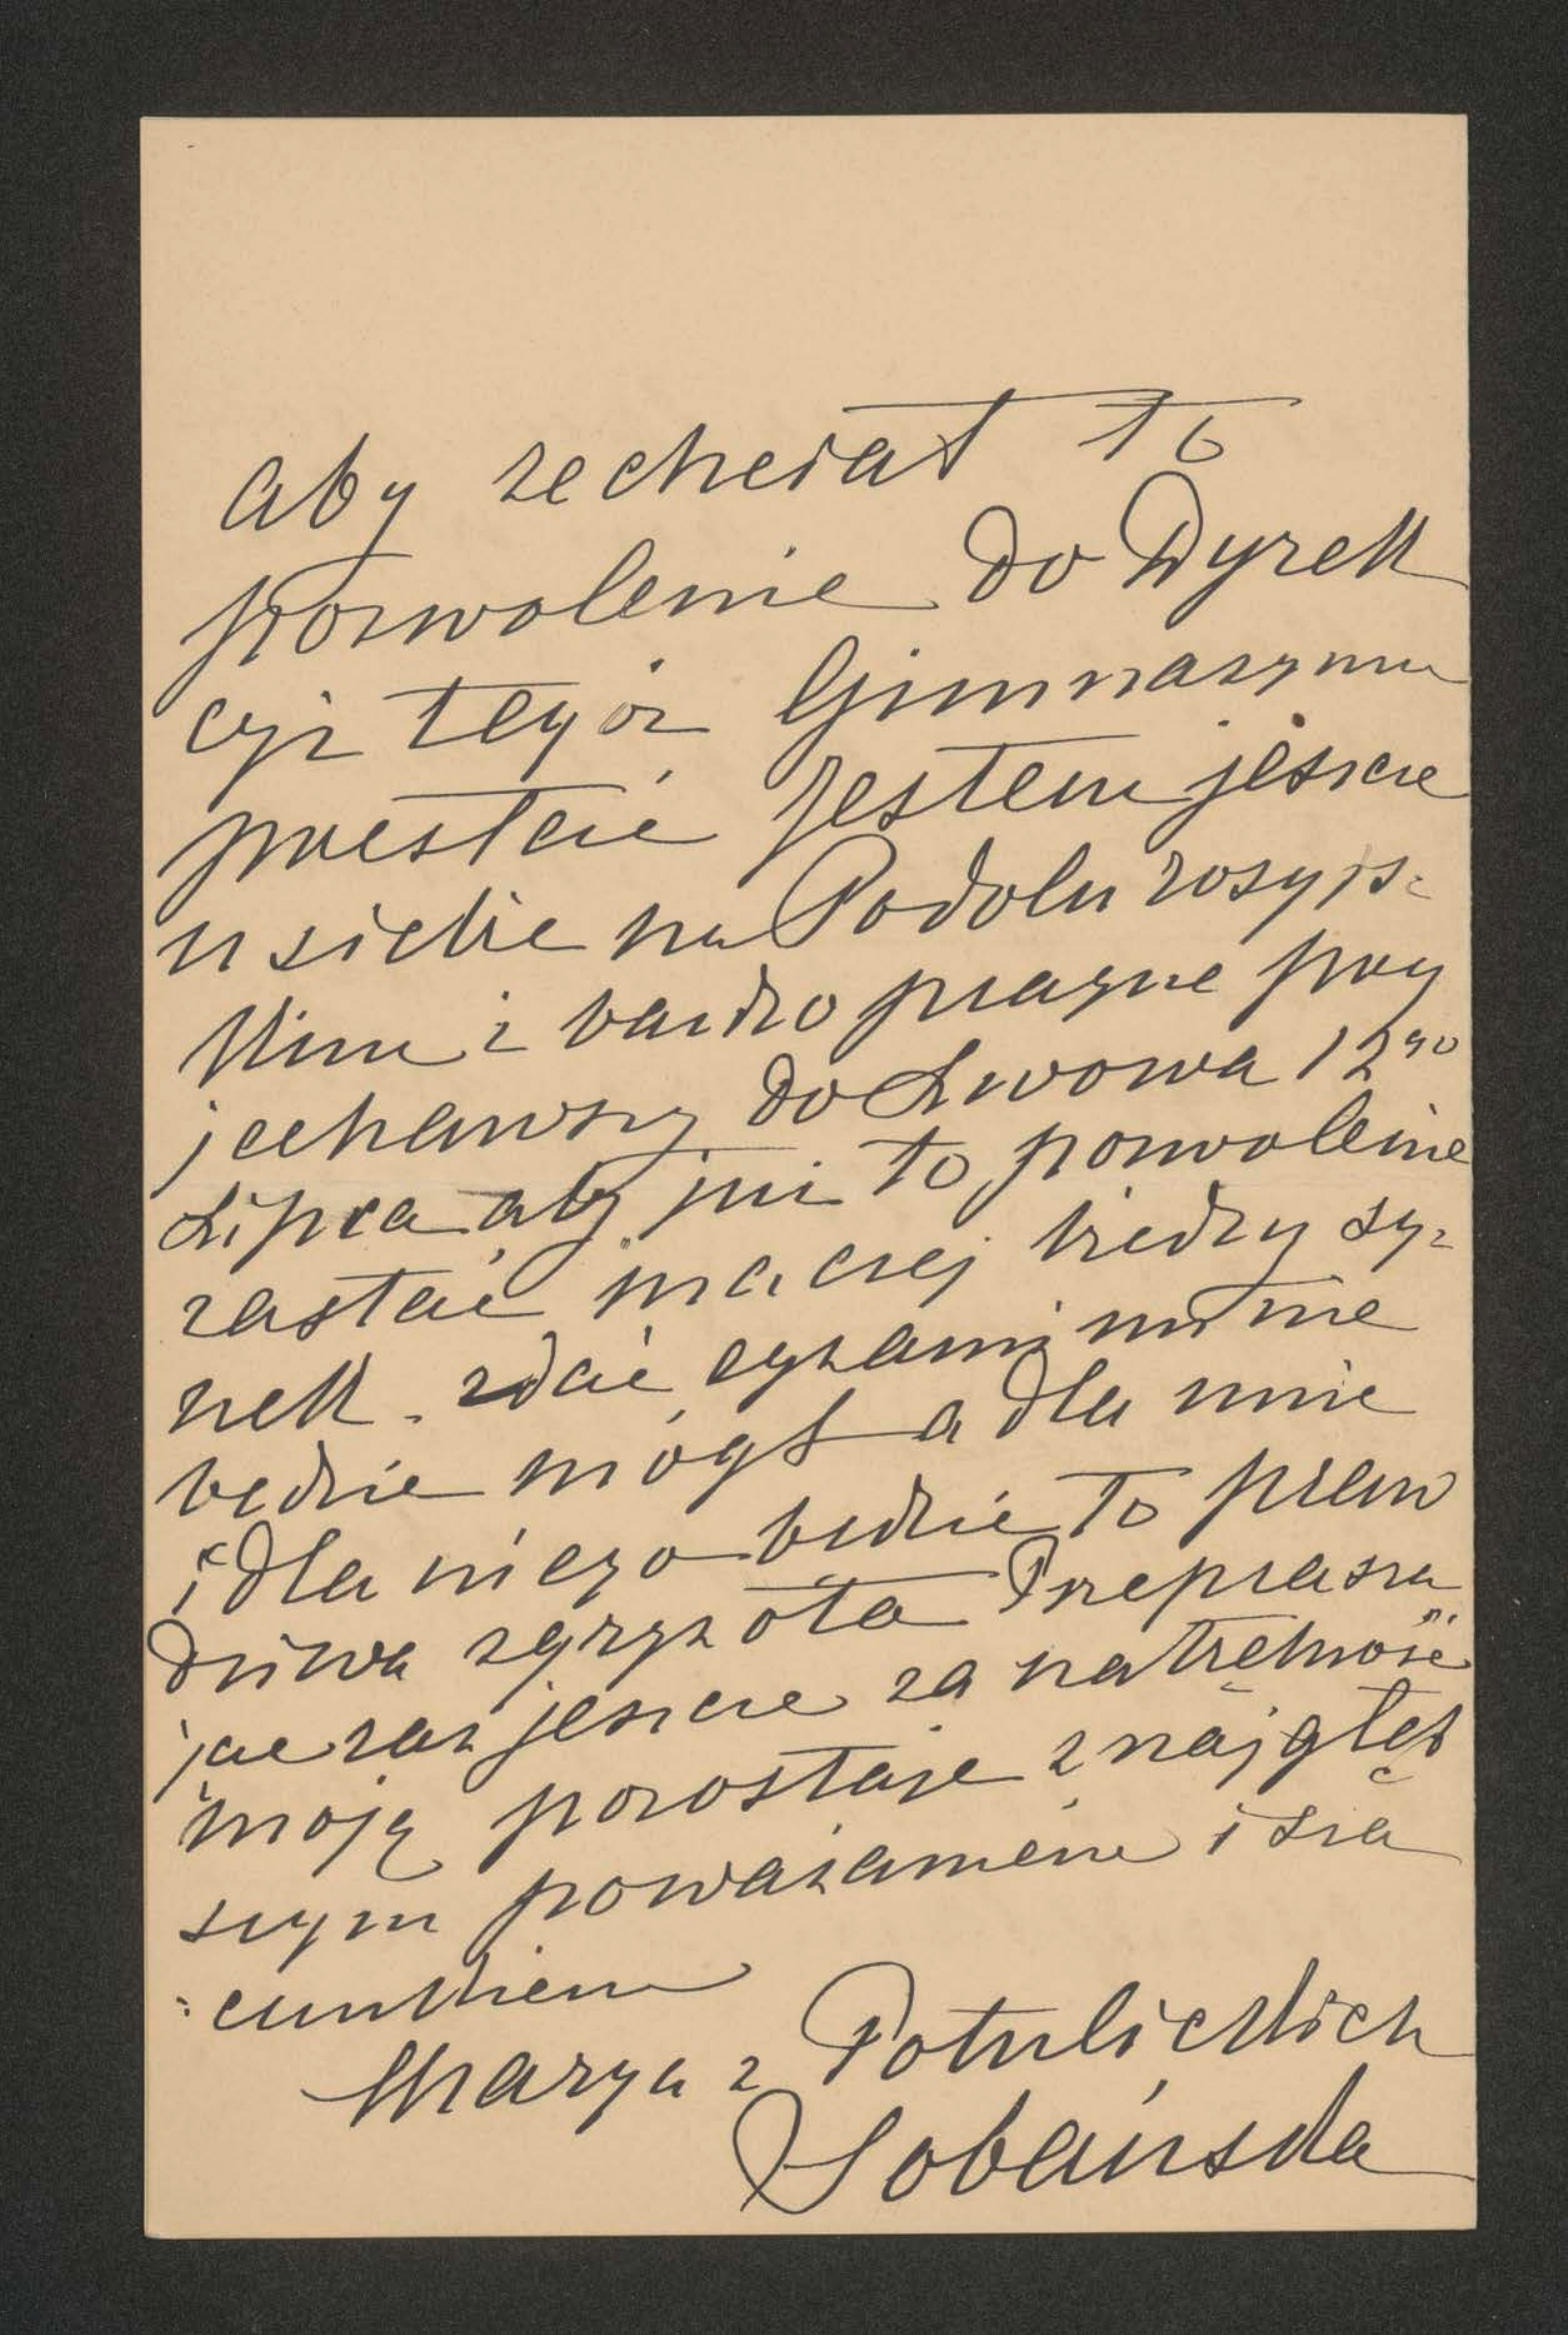 aby zechciał to
pozwolenie do Dyrek
cyi tegoż Gimnazyum
przesłać Jestem jeszcze
u siebie na Podolu rosyjs-
kim i bardzo pragnę przy
jechawszy do Lwowa 12go
Lipca aby już to pozwolenie
zastać inaczej biedny sy-
nek zdać egzaminu nie
będzie mógł a dla mnie
i dla niego będzie to praw
dziwa zgryzota Przeprasza
jąc raz jeszcze za natrętność
moją pozostaję z najgłęb
szym poważaniem i sza
cunkiem
Marya z Potulickich
Sobańska